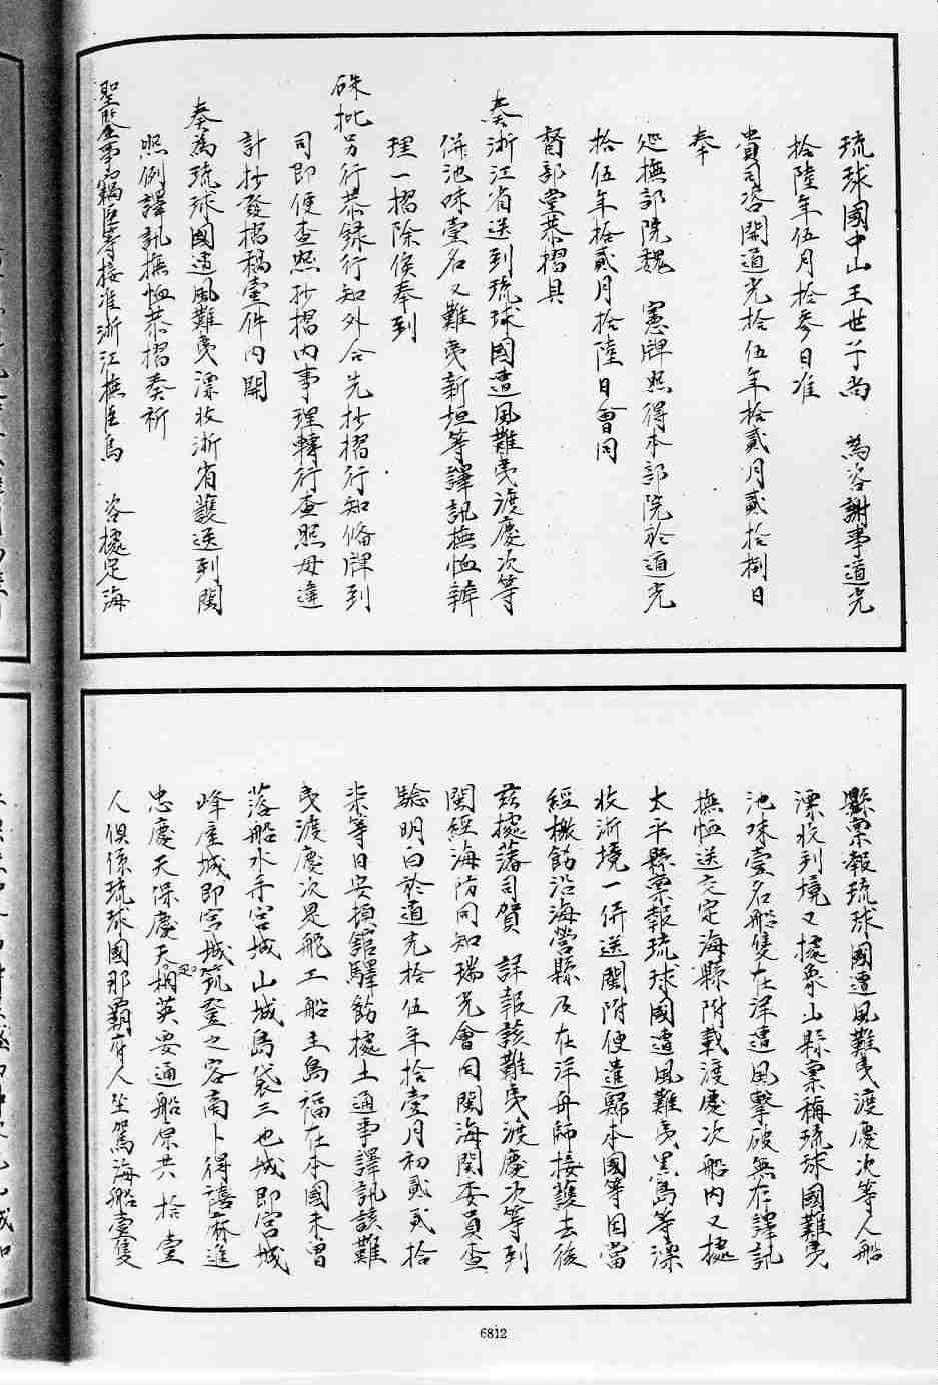 琉球國中山王世子尚　為咨謝事道光
拾陸年伍月拾參日准
貴司咨開道光拾伍年拾貳月貳拾捌日
奉
巡撫部院魏　憲牌照得本部院於道光
拾伍年拾貳月拾陸日會同
督部堂恭摺具
奏浙江省送到琉球國遭風難夷渡慶次等
併池味壹名又難夷新垣等譯訊撫恤辦
理一摺除俟奉到
硃批另行恭録行知外合先抄摺行知俻牌到
司即便查照抄摺内事理轉行查照毋違
計抄發摺稿壹件内開
奏為琉球國遭風難夷漂收浙省護送到閩
照例譯訊撫恤恭摺奏祈
聖鑒事竊臣等接准浙江撫臣烏　咨據定海
縣禀報琉球國遭風難夷渡慶次等人船
漂收到境又據象山縣禀稱琉球國難夷
池味壹名船隻在洋遭風擊破無存譯訊
撫恤送交定海縣附載渡慶次船内又據
太平縣禀報琉球國遭風難夷黑島等漂
收浙境一併送閩附便遣歸本國等因當
經檄飭沿海營縣及在洋舟師接護去後
茲據藩司賀　詳報該難夷渡慶次等到
閩經海防同知瑞光會同閩海關委員查
驗明白於道光拾伍年拾壹月初貳貳拾
柒等日安頓館驛飭據土通事譯訊該難
夷渡慶次是舵工船主島福在本國未曾
落船水手宮城山城島袋三也城即宮城
峰座城即宮城筑登之客商卜得譆蔴進
忠慶天保慶天柄英要通船原共拾壹
人俱係琉球國那覇府人坐駕海船壹隻
6812